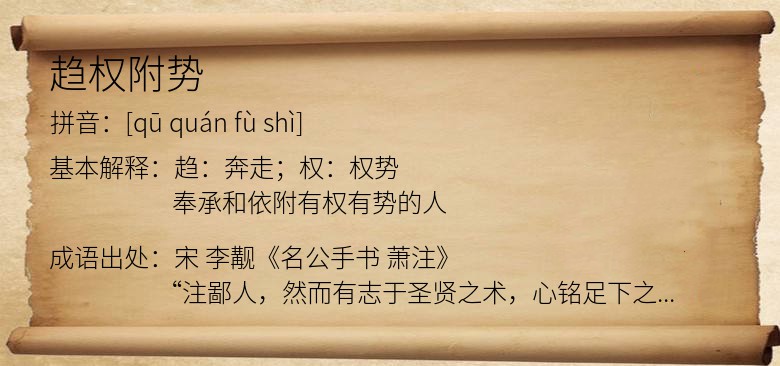 趋权附势
拼音：[qū quán fù shì]
基本解释：趋：奔走；权：权势
奉承和依附有权有势的人
成语出处：宋 李觏《名公手书 萧注》
“注鄙人，然而有志于圣贤之术，心铭足下之...